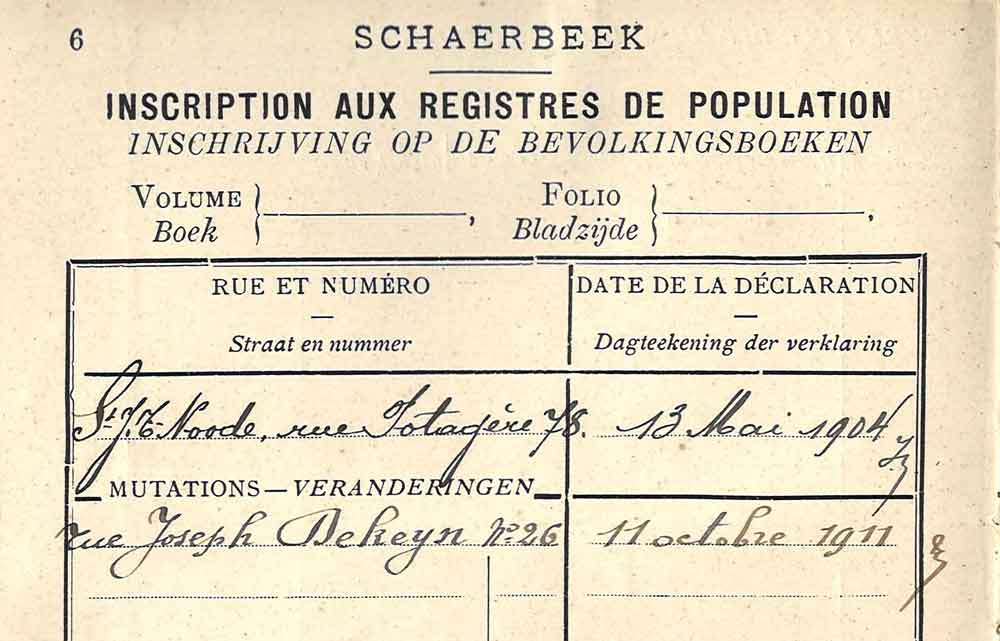 6
SCHAERBEEK
INSCRIPTION AUX REGISTRES DE POPULATION
INSCHRIJVING OP DE BEVOLKINGSBOEKEN
VOLUME } , FOLIO } ,
Boek Bladzijde
RUE ET NUMÉRO DATE DE LA DÉCLARATION
Straat en nummer Dagteekening der verklaring
St. J. t. Noode, rue Potagère 78. 13 Mai 1904
MUTATIONS — VERANDERINGEN
rue Joseph Dekeyn No 26 11 octobre 1911